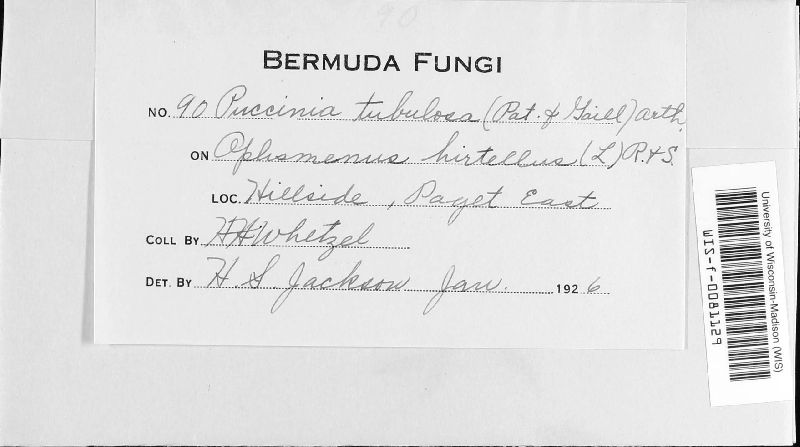 90
BERMUDA FUNGI
NO. 90 Puccinia tubulosa (Pat. & Gaill) Arth.
ON Oplismenus hirtellus (L) R. & S.
LOC. Hillside, Paget East
COLL BY HHWhetzel
DET. BY H. S. Jackson Jan. 1926
University of Wisconsin-Madison (WIS)
WIS-f-0081129